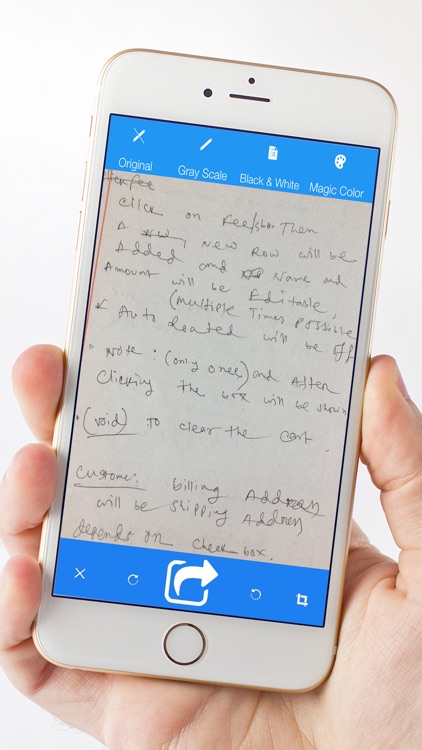 Original
Gray Scale
Black & White
Magic Color
click on Fee/shor Then
A new, New Row will be
Added and Name and
Amount will be Editable,
(Multiple Times possible
Auto Loated will be off
Note : (only once) and After
Clicking the box will be shown
(void) To clear the cart.
Customer: billing Address
will be shipping Address
depends on check box.